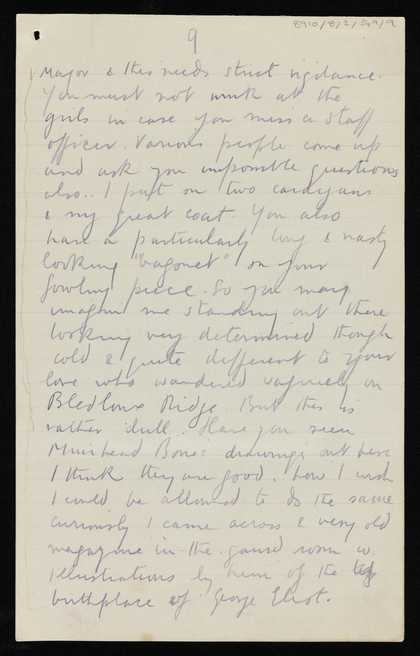 8910/8/2/549/9
9
Major & this needs strict vigilance.
You must not wink at the
girls in case you miss a staff
officer. Various people come up
and ask you impossible questions
also.. I put on two cardigans
& my great coat. You also
have a particularly long & nasty
looking "bagonet" on your
fowling piece. So you may
imagine me standing out there
looking very determined though
cold & quite different to your
love who wandered vaguely on
Bledlow Ridge. But this is
rather dull. Have you seen
Muirhead Bones drawings out here
I think they are good. how I wish
I could be allowed to do the same
Curiously I came across a very old
magazine in the guard room w.
illustrations by him of the
birthplace of George Eliot.